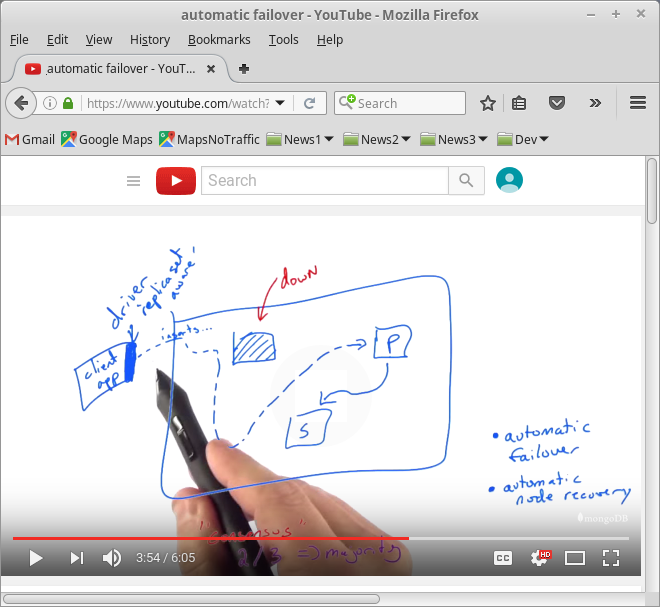 automatic failover - YouTube - Mozilla Firefox
File Edit View History Bookmarks Tools Help
automatic failover - YouT...
https://www.youtube.com/watch?
Search
Gmail Google Maps MapsNoTraffic News1 News2 News3 Dev
Search
driver
replica set
aware
down
inserts...
client
app
P
S
• automatic
failover
• automatic
node recovery
mongoDB
"consensus"
2/3 => majority
3:54 / 6:05
CC
HD